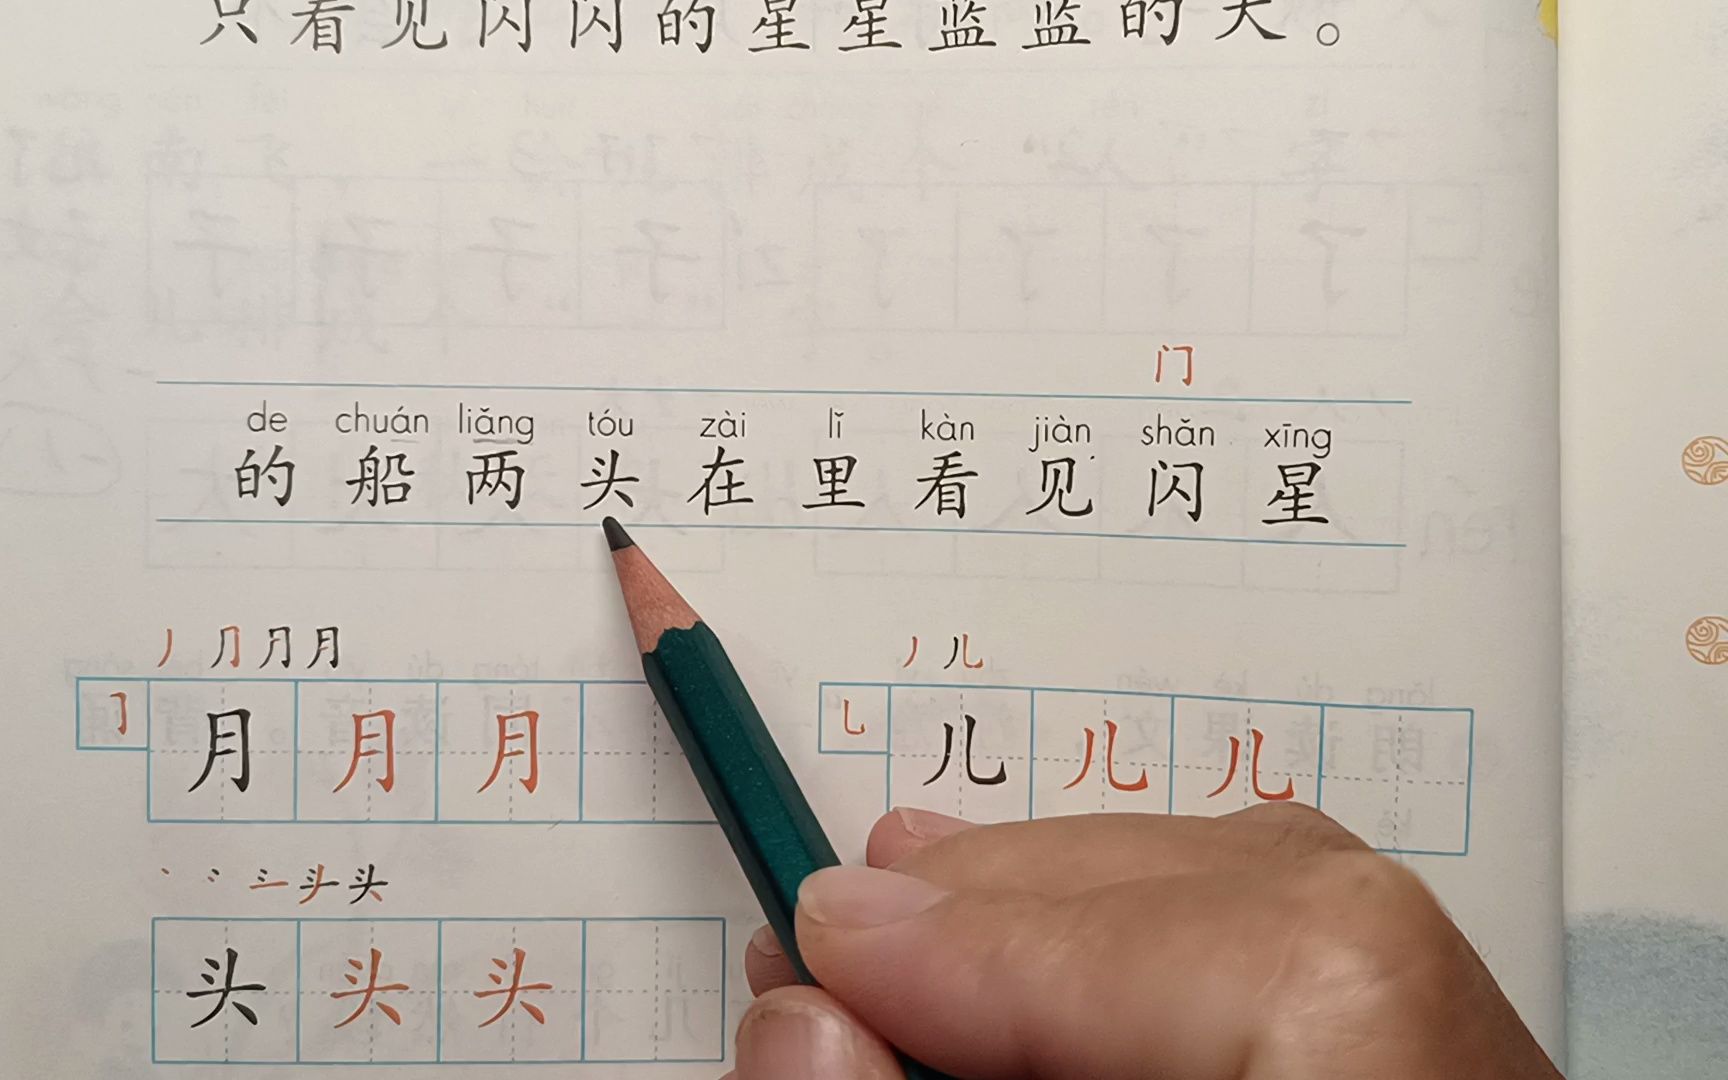 只看见闪闪的星星蓝蓝的天。
门
de chuán liǎng tóu zài lǐ kàn jiàn shǎn xīng
的 船 两 头 在 里 看 见 闪 星
丿 ⺆ 月 月
丿 儿
㇆ 月 月 月
乚 儿 儿 儿
头
头 头 头